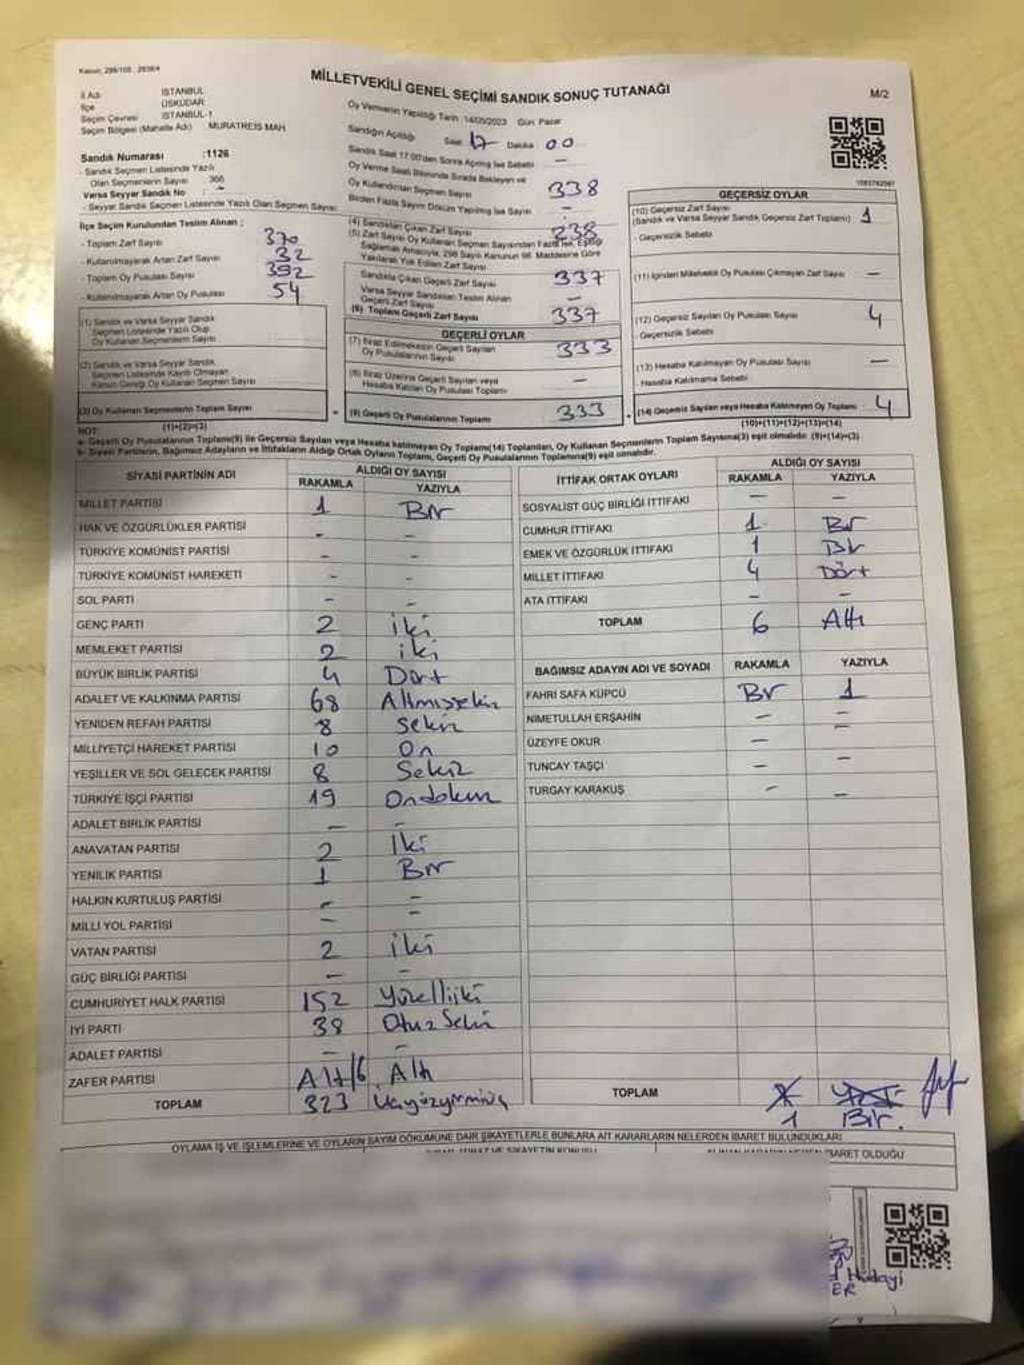 Kanun: 298/105 : 2839/4
MİLLETVEKİLİ GENEL SEÇİMİ SANDIK SONUÇ TUTANAĞI
M/2
İl Adı İSTANBUL
İlçe ÜSKÜDAR
Seçim Çevresi İSTANBUL-1
Seçim Bölgesi (Mahalle Adı) : MURATREİS MAH
Oy Vermenin Yapıldığı Tarih : 14/05/2023 Gün: Pazar
Sandığın Açıldığı Saat: 17 Dakika 00
Sandık Saat 17:00'den Sonra Açılmış İse Sebebi —
Oy Verme Saati Bitiminde Sırada Bekleyen ve
Oy Kullandırılan Seçmen Sayısı 338
Birden Fazla Sayım Döküm Yapılmış İse Sayısı -
Sandık Numarası :1126
- Sandık Seçmen Listesinde Yazılı
Olan Seçmenlerin Sayısı : 366
Varsa Seyyar Sandık No : -
- Seyyar Sandık Seçmen Listesinde Yazılı Olan Seçmen Sayısı:
İlçe Seçim Kurulundan Teslim Alınan ;
- Toplam Zarf Sayısı 370
- Kullanılmayarak Artan Zarf Sayısı 32
- Toplam Oy Pusulası Sayısı 392
- Kullanılmayarak Artan Oy Pusulası 54
(1) Sandık ve Varsa Seyyar Sandık
Seçmen Listesinde Yazılı Olup
Oy Kullanan Seçmenlerin Sayısı
(2) Sandık ve Varsa Seyyar Sandık
Seçmen Listesinde Kayıtlı Olmayan
Kanun Gereği Oy Kullanan Seçmen Sayısı
(3) Oy Kullanan Seçmenlerin Toplam Sayısı
(1)+(2)=(3)
(4) Sandıktan Çıkan Zarf Sayısı 238
(5) Zarf Sayısı Oy Kullanan Seçmen Sayısından Fazla İse, Eşitliği
Sağlamak Amacıyla, 298 Sayılı Kanunun 98. Maddesine Göre
Yakılarak Yok Edilen Zarf Sayısı
Sandıkta Çıkan Geçerli Zarf Sayısı 337
Varsa Seyyar Sandıktan Teslim Alınan
Geçerli Zarf Sayısı —
(6) Toplam Geçerli Zarf Sayısı 337
GEÇERLİ OYLAR
(7) İtiraz Edilmeksizin Geçerli Sayılan
Oy Pusulalarının Sayısı 333
(8) İtiraz Üzerine Geçerli Sayılan veya
Hesaba Katılan Oy Pusulası Toplamı —
(9) Geçerli Oy Pusulalarının Toplamı 333
GEÇERSİZ OYLAR
(10) Geçersiz Zarf Sayısı
(Sandık ve Varsa Seyyar Sandık Geçersiz Zarf Toplamı) 1
- Geçersizlik Sebebi
(11) İçinden Milletvekili Oy Pusulası Çıkmayan Zarf Sayısı —
(12) Geçersiz Sayılan Oy Pusulası Sayısı 4
Geçersizlik Sebebi
(13) Hesaba Katılmayan Oy Pusulası Sayısı —
Hesaba Katılmama Sebebi
(14) Geçersiz Sayılan veya Hesaba Katılmayan Oy Toplamı 4
(10)+(11)+(12)+(13)=(14)
NOT:
a- Geçerli Oy Pusulalarının Toplamı(9) ile Geçersiz Sayılan veya Hesaba katılmayan Oy Toplamı(14) Toplamları, Oy Kullanan Seçmenlerin Toplam Sayısına(3) eşit olmalıdır. (9)+(14)=(3)
b- Siyasi Partilerin, Bağımsız Adayların ve İttifakların Aldığı Ortak Oyların Toplamı, Geçerli Oy Pusulalarının Toplamına(9) eşit olmalıdır.
SİYASİ PARTİNİN ADI ALDIĞI OY SAYISI
RAKAMLA YAZIYLA
MİLLET PARTİSİ 1 Bir
HAK VE ÖZGÜRLÜKLER PARTİSİ - -
TÜRKİYE KOMÜNİST PARTİSİ - -
TÜRKİYE KOMÜNİST HAREKETİ - -
SOL PARTİ - -
GENÇ PARTİ 2 iki
MEMLEKET PARTİSİ 2 iki
BÜYÜK BİRLİK PARTİSİ 4 Dört
ADALET VE KALKINMA PARTİSİ 68 Altmışsekiz
YENİDEN REFAH PARTİSİ 8 sekiz
MİLLİYETÇİ HAREKET PARTİSİ 10 On
YEŞİLLER VE SOL GELECEK PARTİSİ 8 Sekiz
TÜRKİYE İŞÇİ PARTİSİ 19 Ondokuz
ADALET BİRLİK PARTİSİ - -
ANAVATAN PARTİSİ 2 İki
YENİLİK PARTİSİ 1 Bir
HALKIN KURTULUŞ PARTİSİ - -
MİLLİ YOL PARTİSİ - -
VATAN PARTİSİ 2 iki
GÜÇ BİRLİĞİ PARTİSİ - -
CUMHURİYET HALK PARTİSİ 152 Yüzelliiki
İYİ PARTİ 38 Otuz Sekiz
ADALET PARTİSİ - -
ZAFER PARTİSİ Altı/6 Altı
TOPLAM 323 Üçyüzyirmiüç
İTTİFAK ORTAK OYLARI ALDIĞI OY SAYISI
RAKAMLA YAZIYLA
SOSYALİST GÜÇ BİRLİĞİ İTTİFAKI — -
CUMHUR İTTİFAKI 1 Bir
EMEK VE ÖZGÜRLÜK İTTİFAKI 1 Bir
MİLLET İTTİFAKI 4 Dört
ATA İTTİFAKI - -
TOPLAM 6 Altı
BAĞIMSIZ ADAYIN ADI VE SOYADI RAKAMLA YAZIYLA
FAHRİ SAFA KÜPCÜ Bir 1
NİMETULLAH ERŞAHİN - -
ÜZEYFE OKUR - -
TUNCAY TAŞÇI - -
TURGAY KARAKUŞ - -
TOPLAM 1 Bir.
OYLAMA İŞ VE İŞLEMLERİNE VE OYLARIN SAYIM DÖKÜMÜNE DAİR ŞİKAYETLERLE BUNLARA AİT KARARLARIN NELERDEN İBARET BULUNDUKLARI
BARET OLDUĞU
Hüdayi
ER